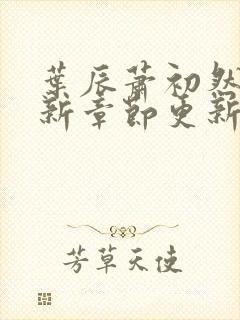 葉辰蕭初然
新章節更新
芳草天使